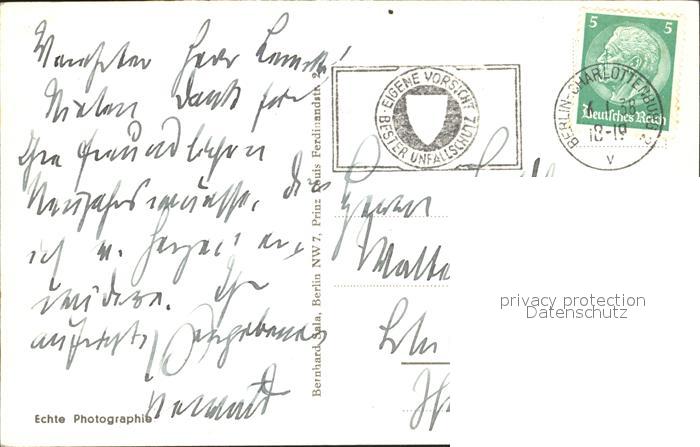 Verehrter Herr
Vielen Dank für
Ihre freundlichen
Neujahrswünsche, die
ich v. Herzen er-
widere. Ihr
aufricht. ergebener
Echte Photographie
Bernhard Sala, Berlin NW 7, Prinz Louis Ferdinandstr. 2
EIGENE VORSICHT
BESTER UNFALLSCHUTZ
5 5
Deutsches Reich
BERLIN-CHARLOTTENBURG
18-19
v
Herrn
Walte
Bln
privacy protection
Datenschutz